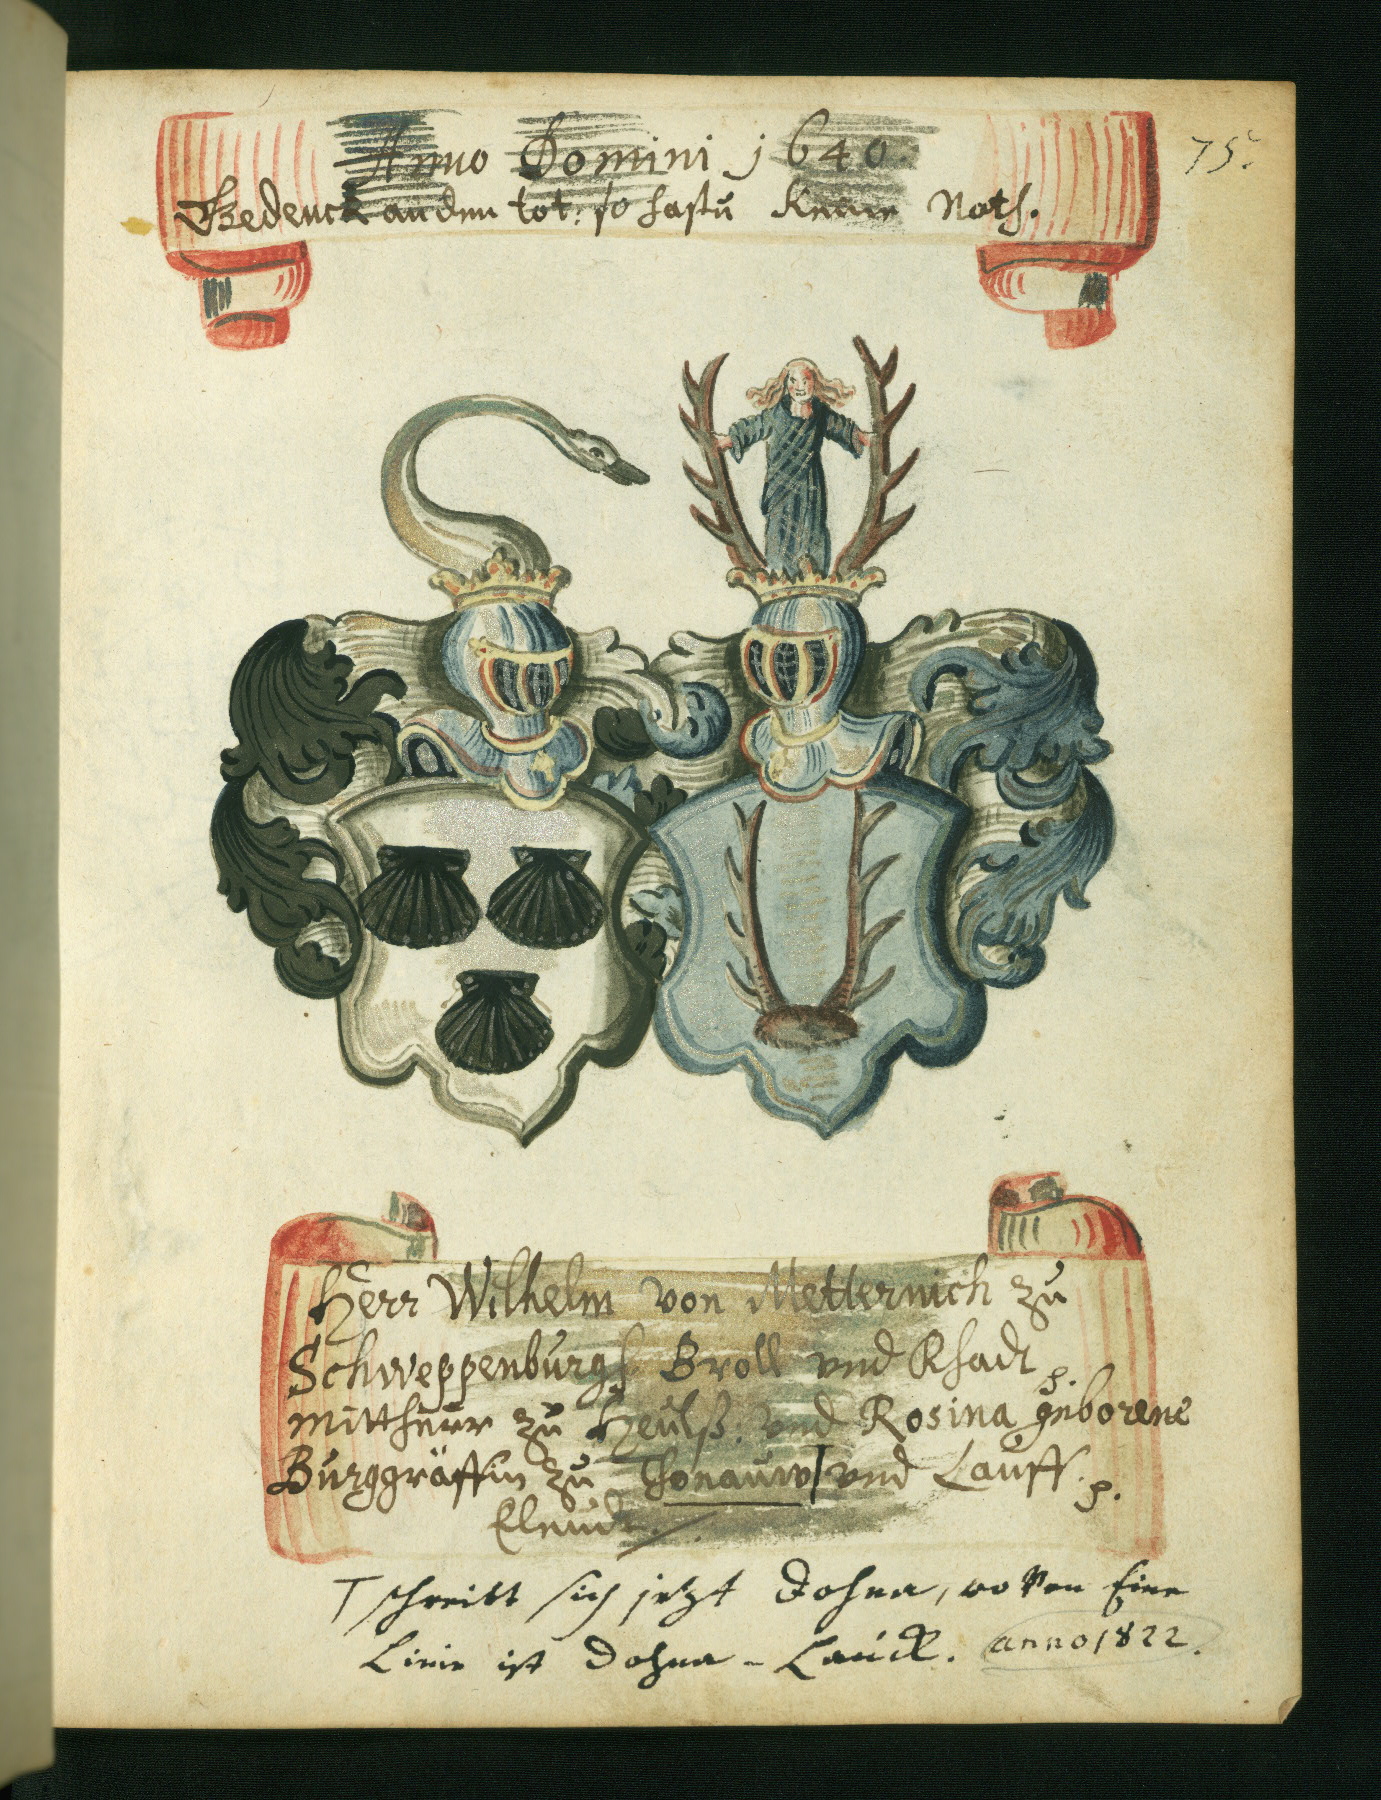 75.
Anno Domini 1640.
Bedenck an den tot: so hastu Keine Noth.
Herr Wilhelm von Metternich zu
Schweppenburgh Broll vnd Rhadt
mittherr zu Heulß: vnd Rosina geborene
Burggräffin zu Thonauw vnd Lauff.
Eleudt
schreibt sich jetzt Dohna, wovon Eine
Linie ist Dohna - Lauck. anno 1822.